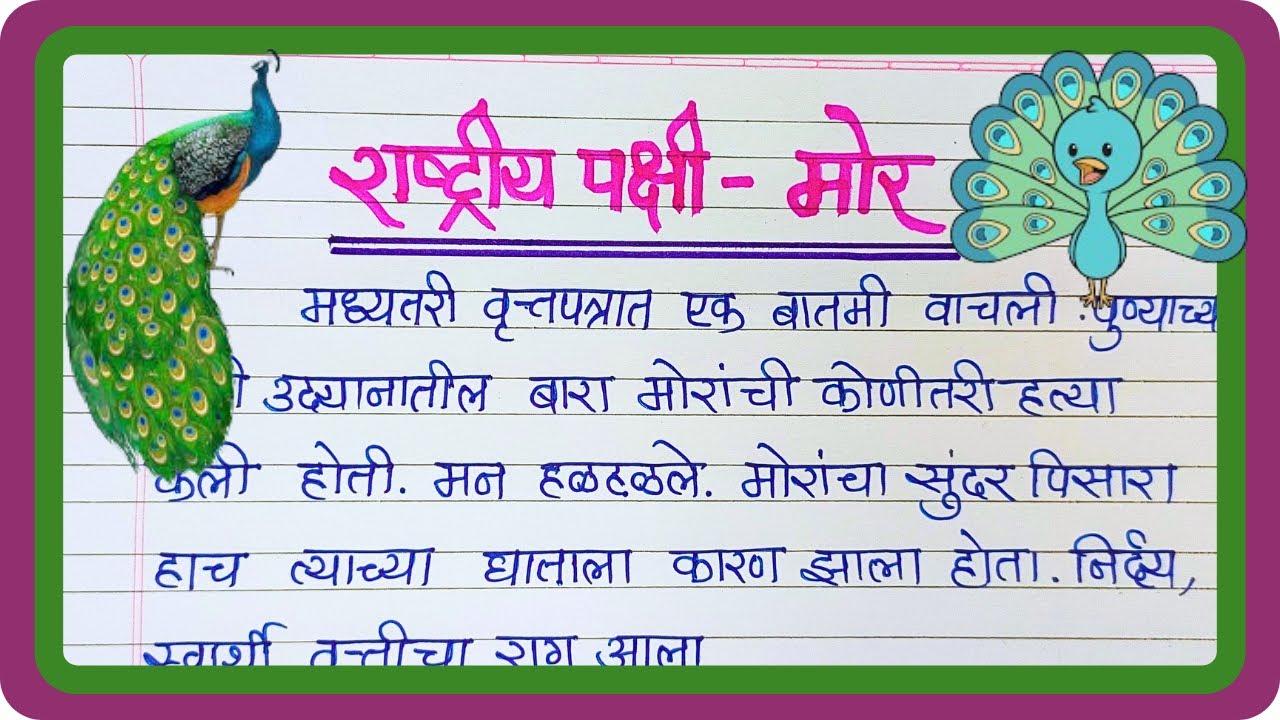 राष्ट्रीय पक्षी - मोर
मध्यतरी वृत्तपत्रात एक बातमी वाचली. पुण्याच्य
उद्यानातील बारा मोरांची कोणीतरी हत्या
केली होती. मन हळहळले. मोरांचा सुंदर पिसारा
हाच त्याच्या घाताला कारण झाला होता. निर्दय,
स्वार्थी वृत्तीचा राग आला